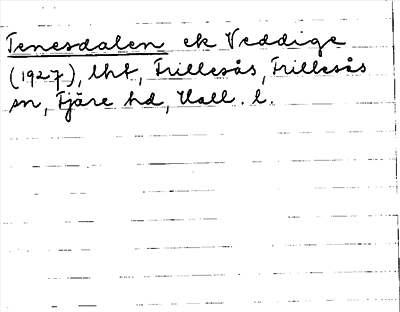 Tenesdalen ek Veddige
(1927), lht, Frillesås, Frillesås
sn, Fjäre hd, Hall. l.